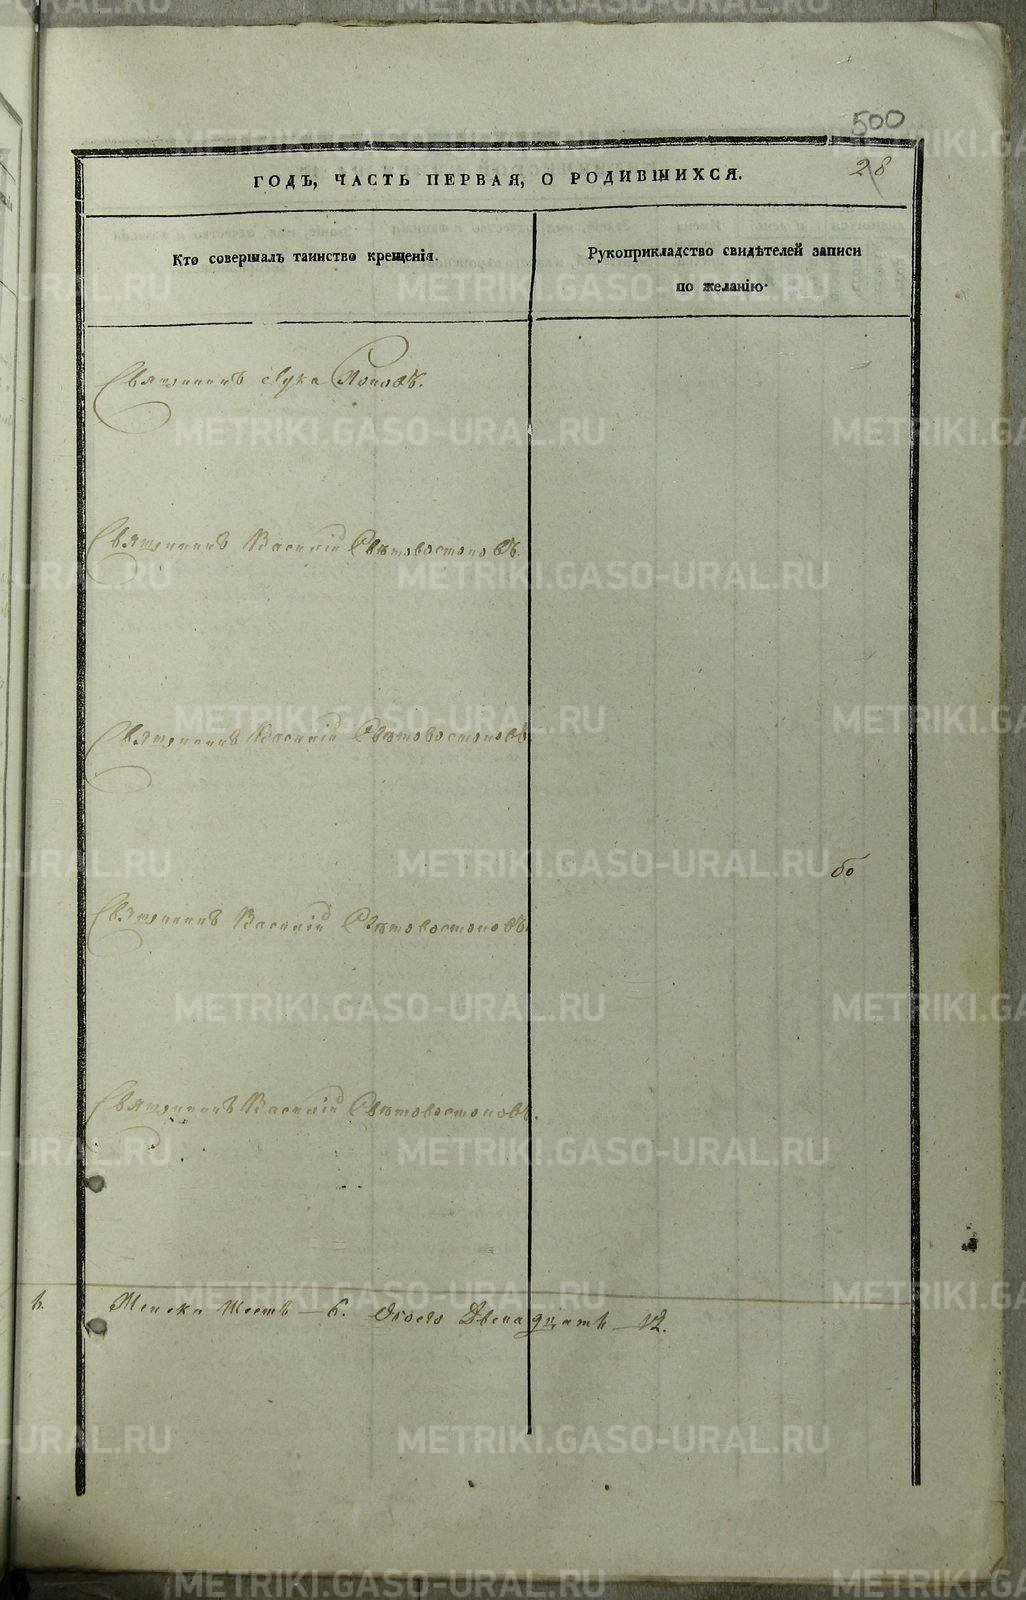 500
28
ГОДЪ, ЧАСТЬ ПЕРВАЯ, О РОДИВШИХСЯ.
Кто совершалъ таинство крещенія.
Рукоприкладство свидѣтелей записи
по желанію.
Священникъ Лука Поповъ.
Священникъ Василій Свѣтовостоковъ.
Священникъ Василій Свѣтовостоковъ
Священникъ Василій Свѣтовостоковъ.
Священникъ Василій Свѣтовостоковъ.
Женска Шесть — 6. Обоего Двенадцать — 12.
METRIKI.GASO-URAL.RU